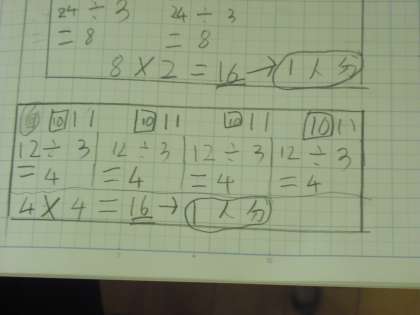 24 ÷ 3 24 ÷ 3
= 8 = 8
8 × 2 = 16 → 1人分
10 11 10 11 10 11 10 11
12 ÷ 3 12 ÷ 3 12 ÷ 3 12 ÷ 3
= 4 = 4 = 4 = 4
4 × 4 = 16 → 1人分